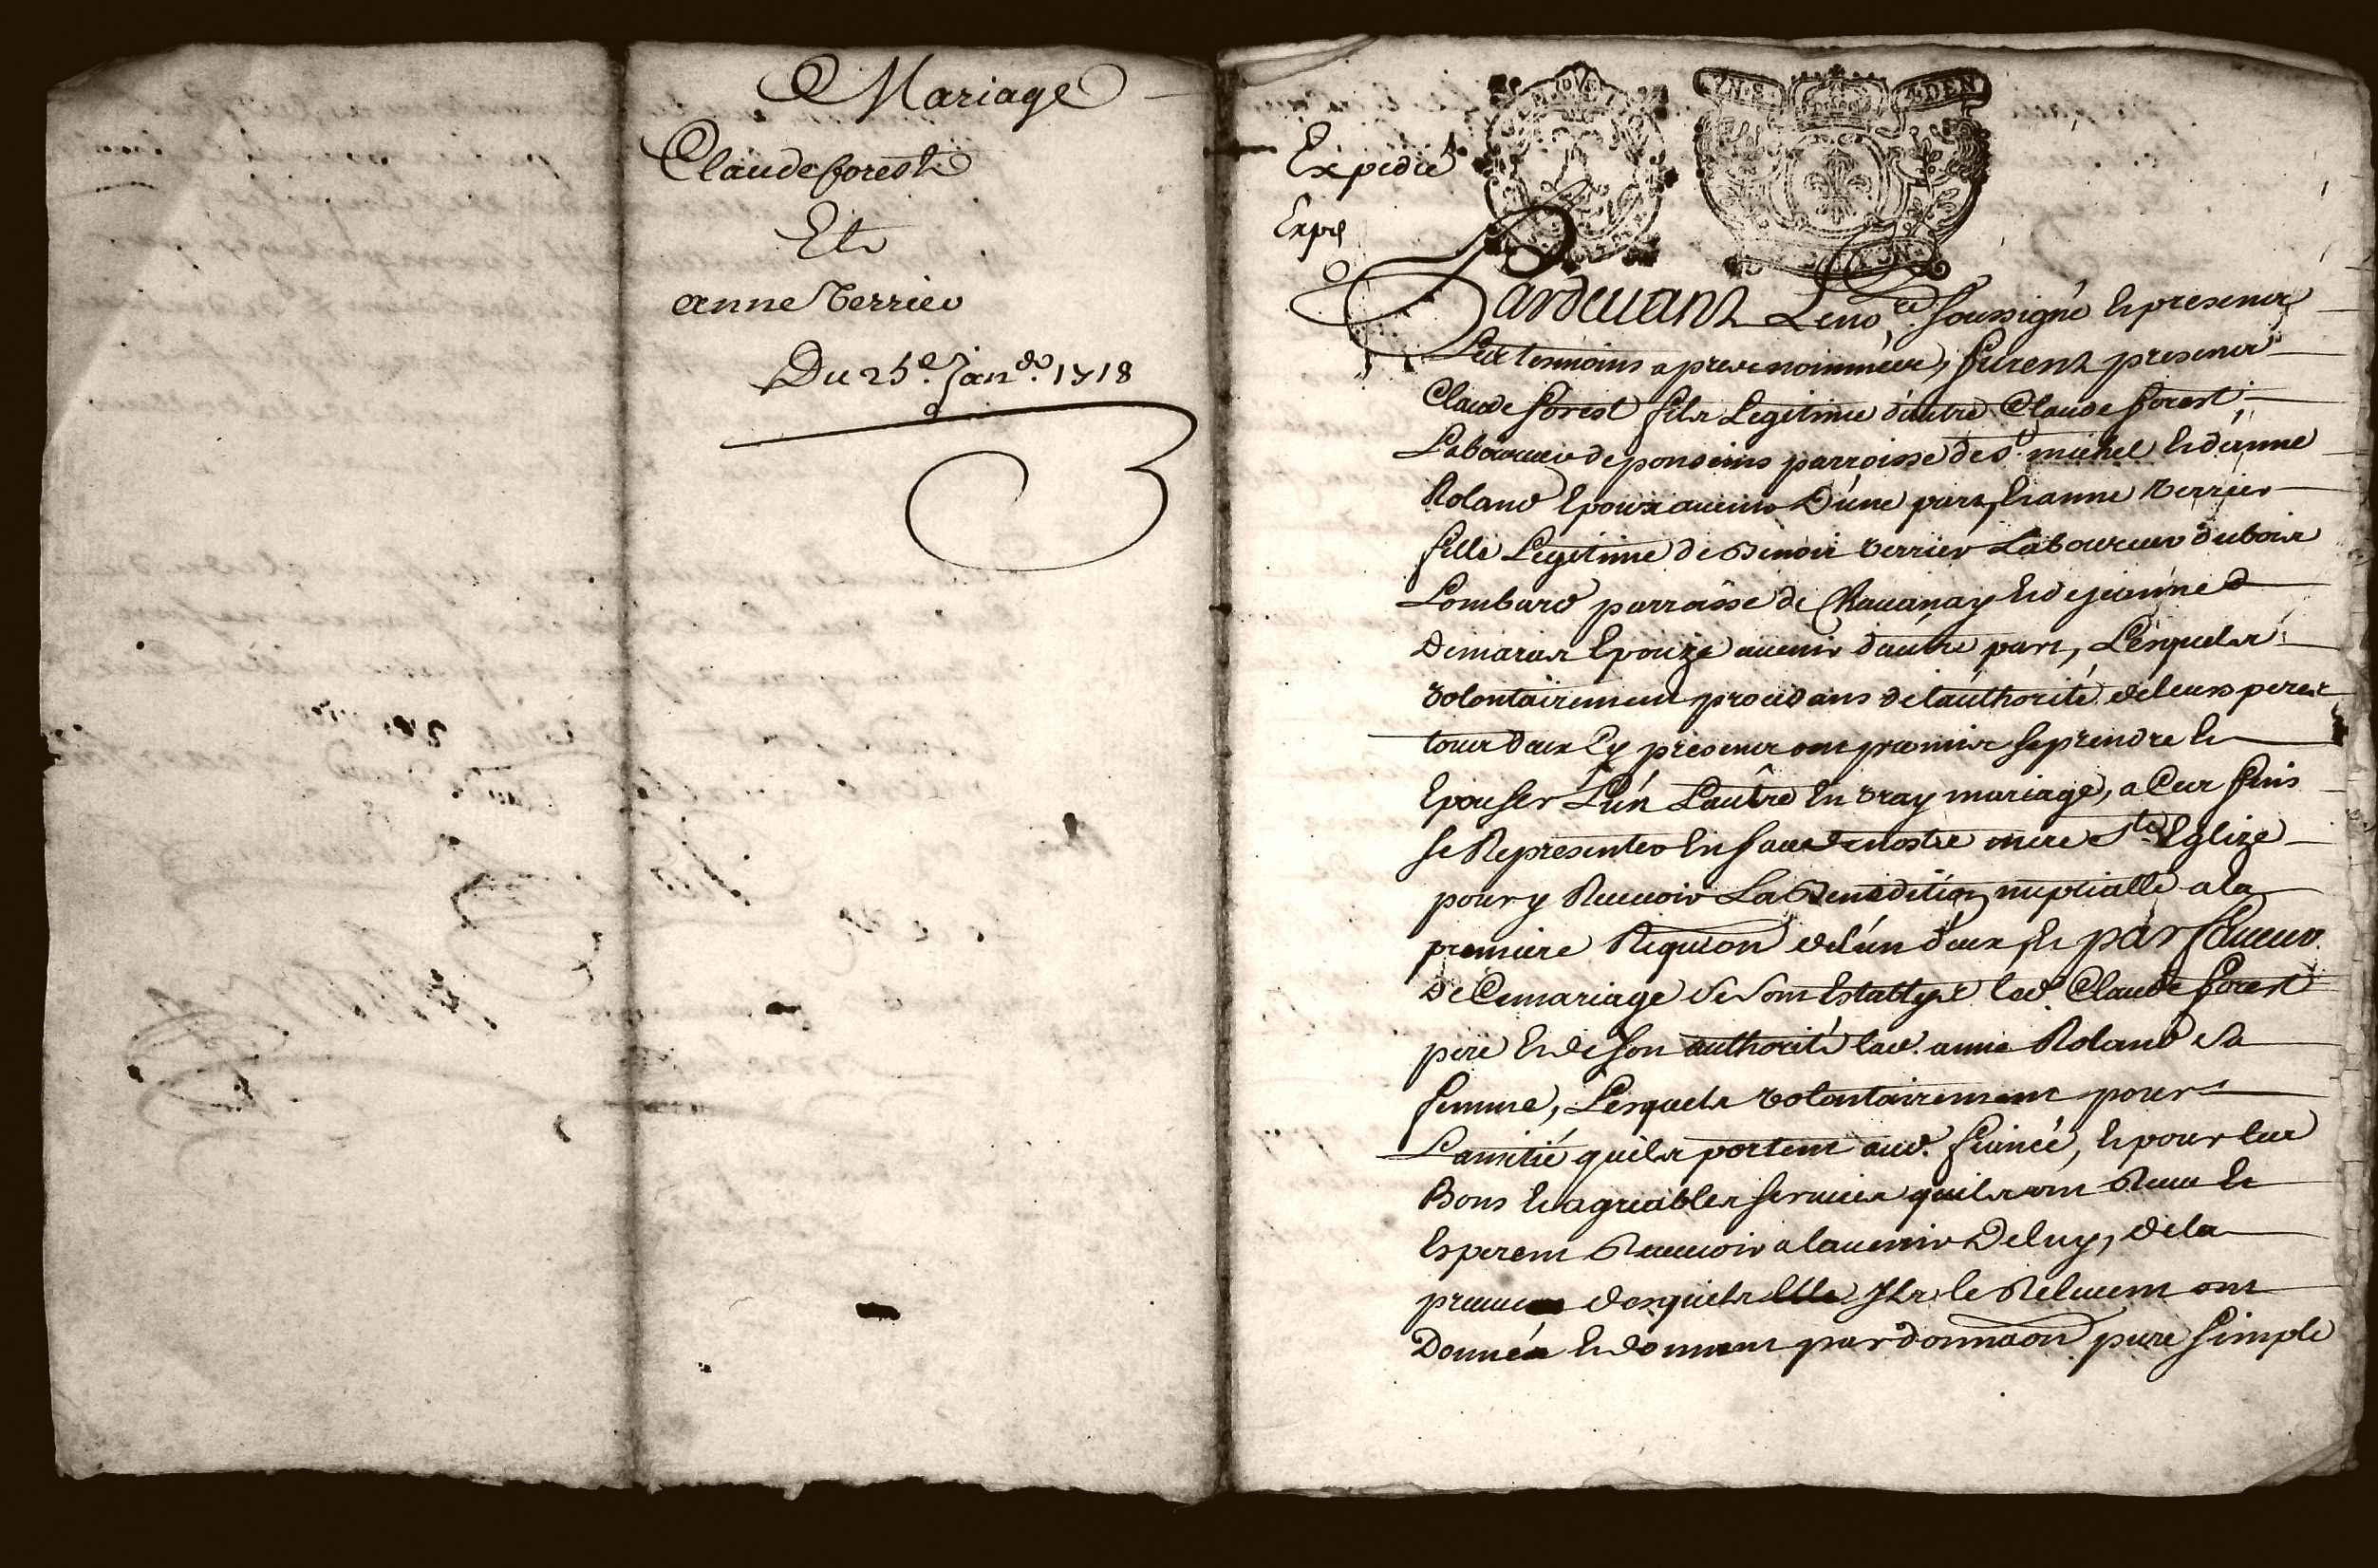 Mariage
Claude forest
Et
anne Verrier
Du 25e. Janer. 1718
Expedié
Expé
Pardevant Le no.re soussigné et presents
Les tesmoins apres nommées, furent presents
Claude forest fils Legitime d'autre Claude forest
Laboureur de ponsenis parroisse de St. michel et d'anne
Roland Epoux avenir D'une part, et anne Verrier
fille Legitime de Benoit Verrier Laboureur du bois
Lombard parroisse de Chavanay et de jeanne
Demaras Epouze avenir d'autre part, Lesquels
volontairement procedans de l'authorité de leurs peres
tous deux Cy presents ont promis se prendre et
Epouser L'un L'autre En vray mariage, a Ces fins
se Representer En face de nostre mere Ste. Eglize
pour y Recevoir La Benedition nuptialle a la
premiere Requion de l'un d'eux, et par faveur
De Ce mariage se sont Establys led. Claude forest
pere et de son authorité lad. anne Roland sa
femme, Lesquels volontairement pour
L'amitié quils portent aud. fiancé, et pour les
Bons et agreables services quils ont Receu et
Esperent Recevoir a lavenir De luy, de la
preuve desquels Ils le Relevent ont
Donnéa et donnent par donnaon pure simple